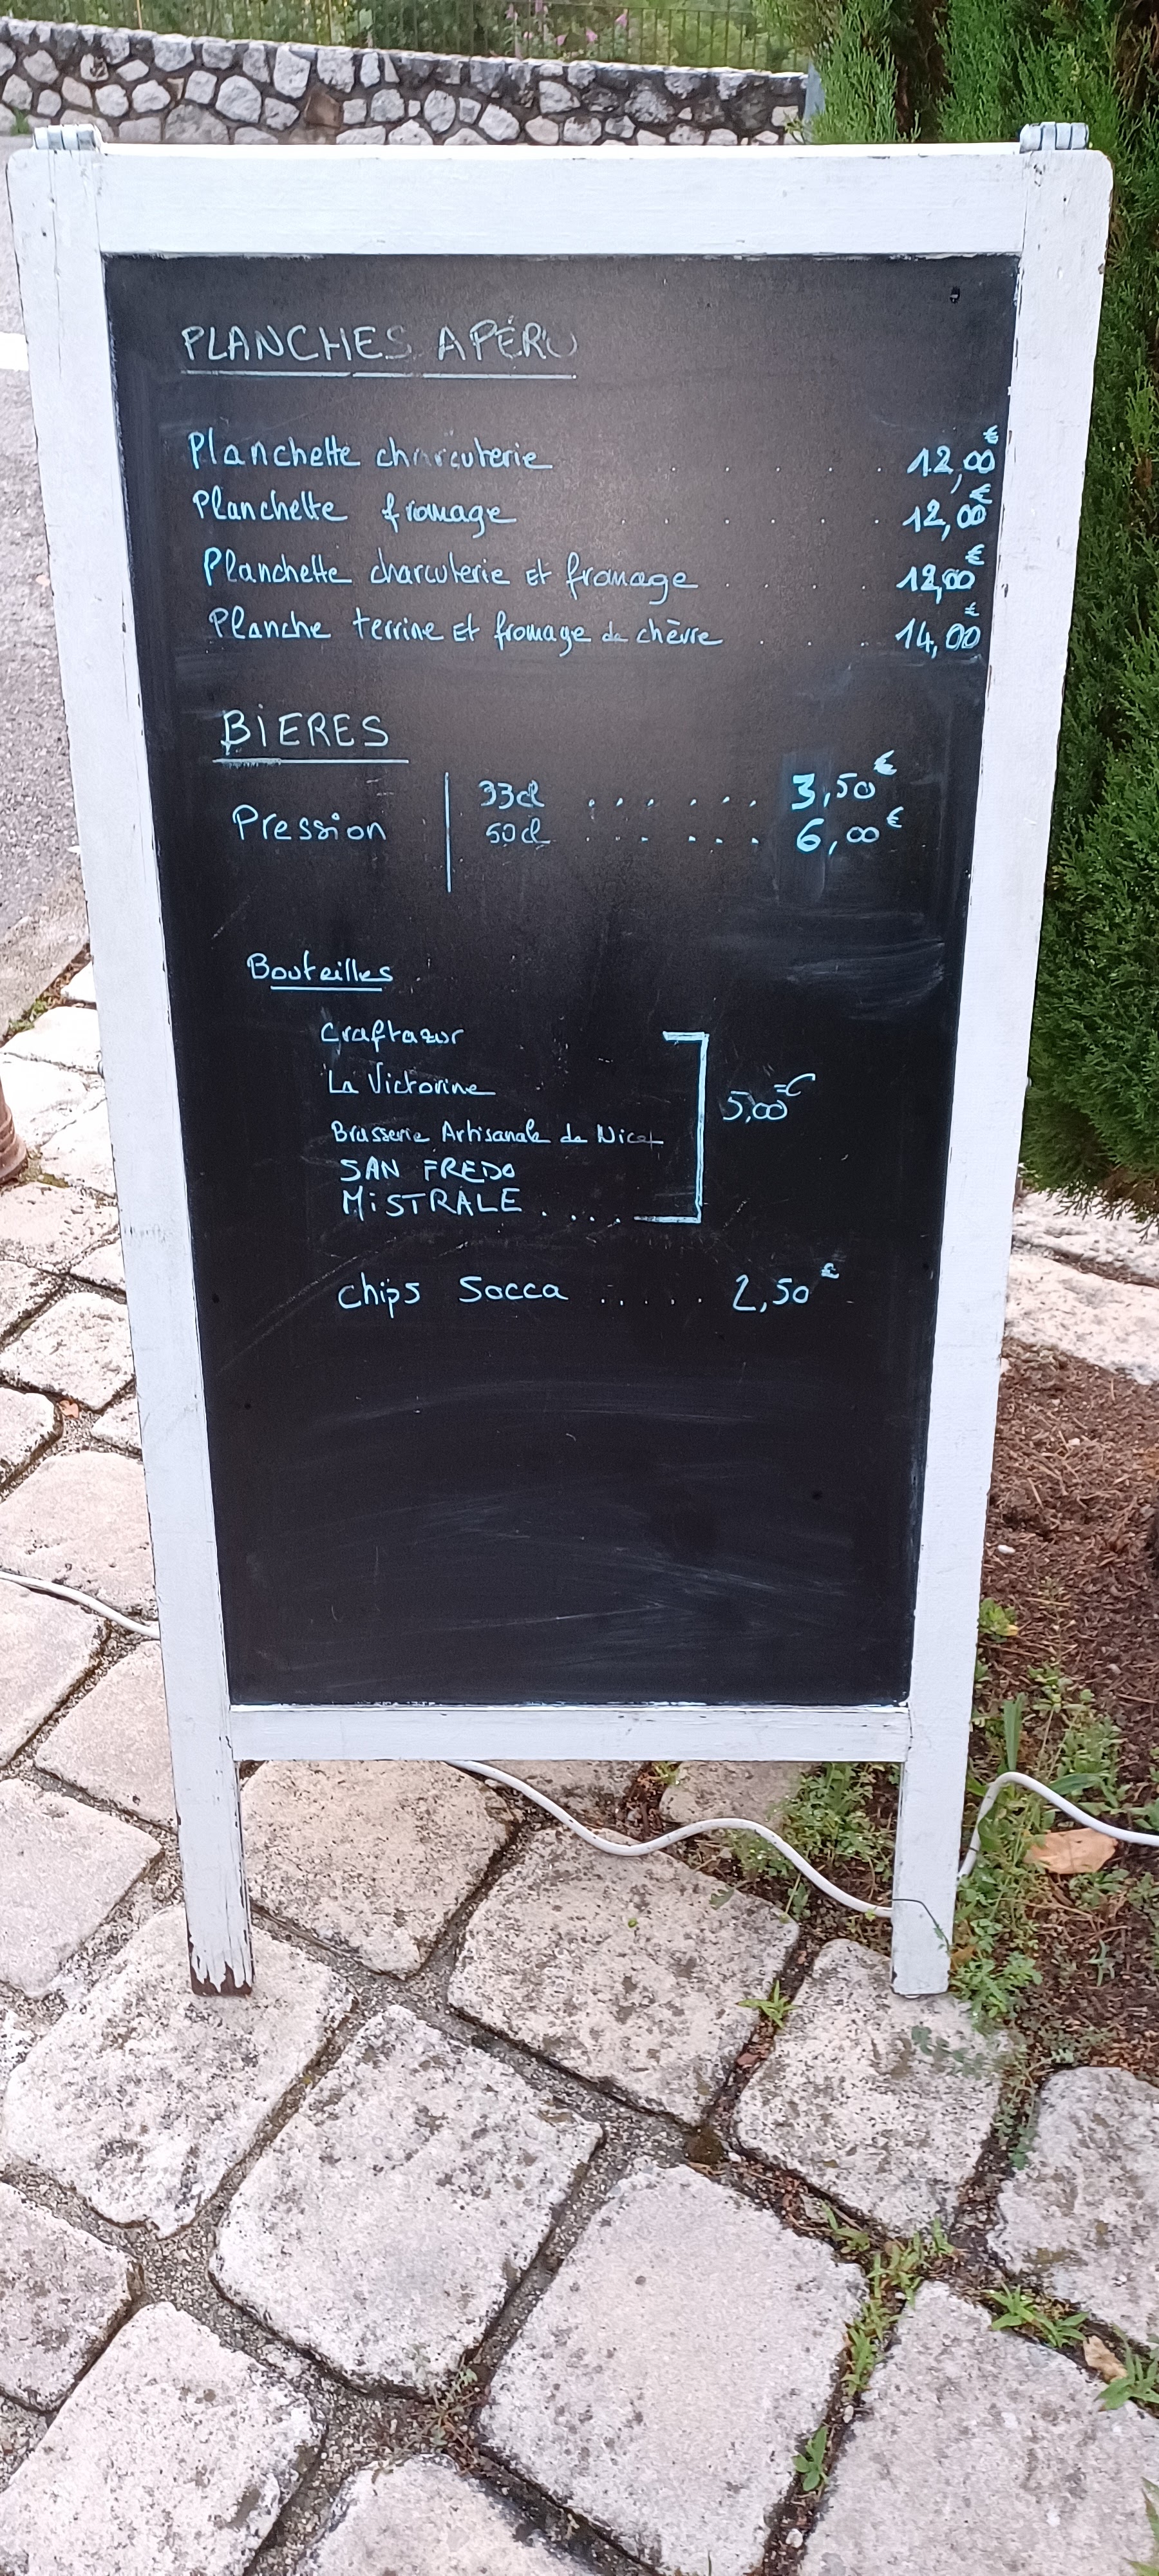 PLANCHES APÉRO
Planchette charcuterie . . . . . 12,00€
Planchette fromage . . . . . 12,00€
Planchette charcuterie Et fromage . . . . 12,00€
Planche terrine Et fromage de chèvre . . . 14,00€
BIERES
Pression 33cl . . . . . . 3,50€
50cl . . . . . . 6,00€
Bouteilles
Craftazur
La Victorine
Brasserie Artisanale de Nice
SAN FREDO
MiSTRALE . . . .
5,00€
Chips Socca . . . . . 2,50€